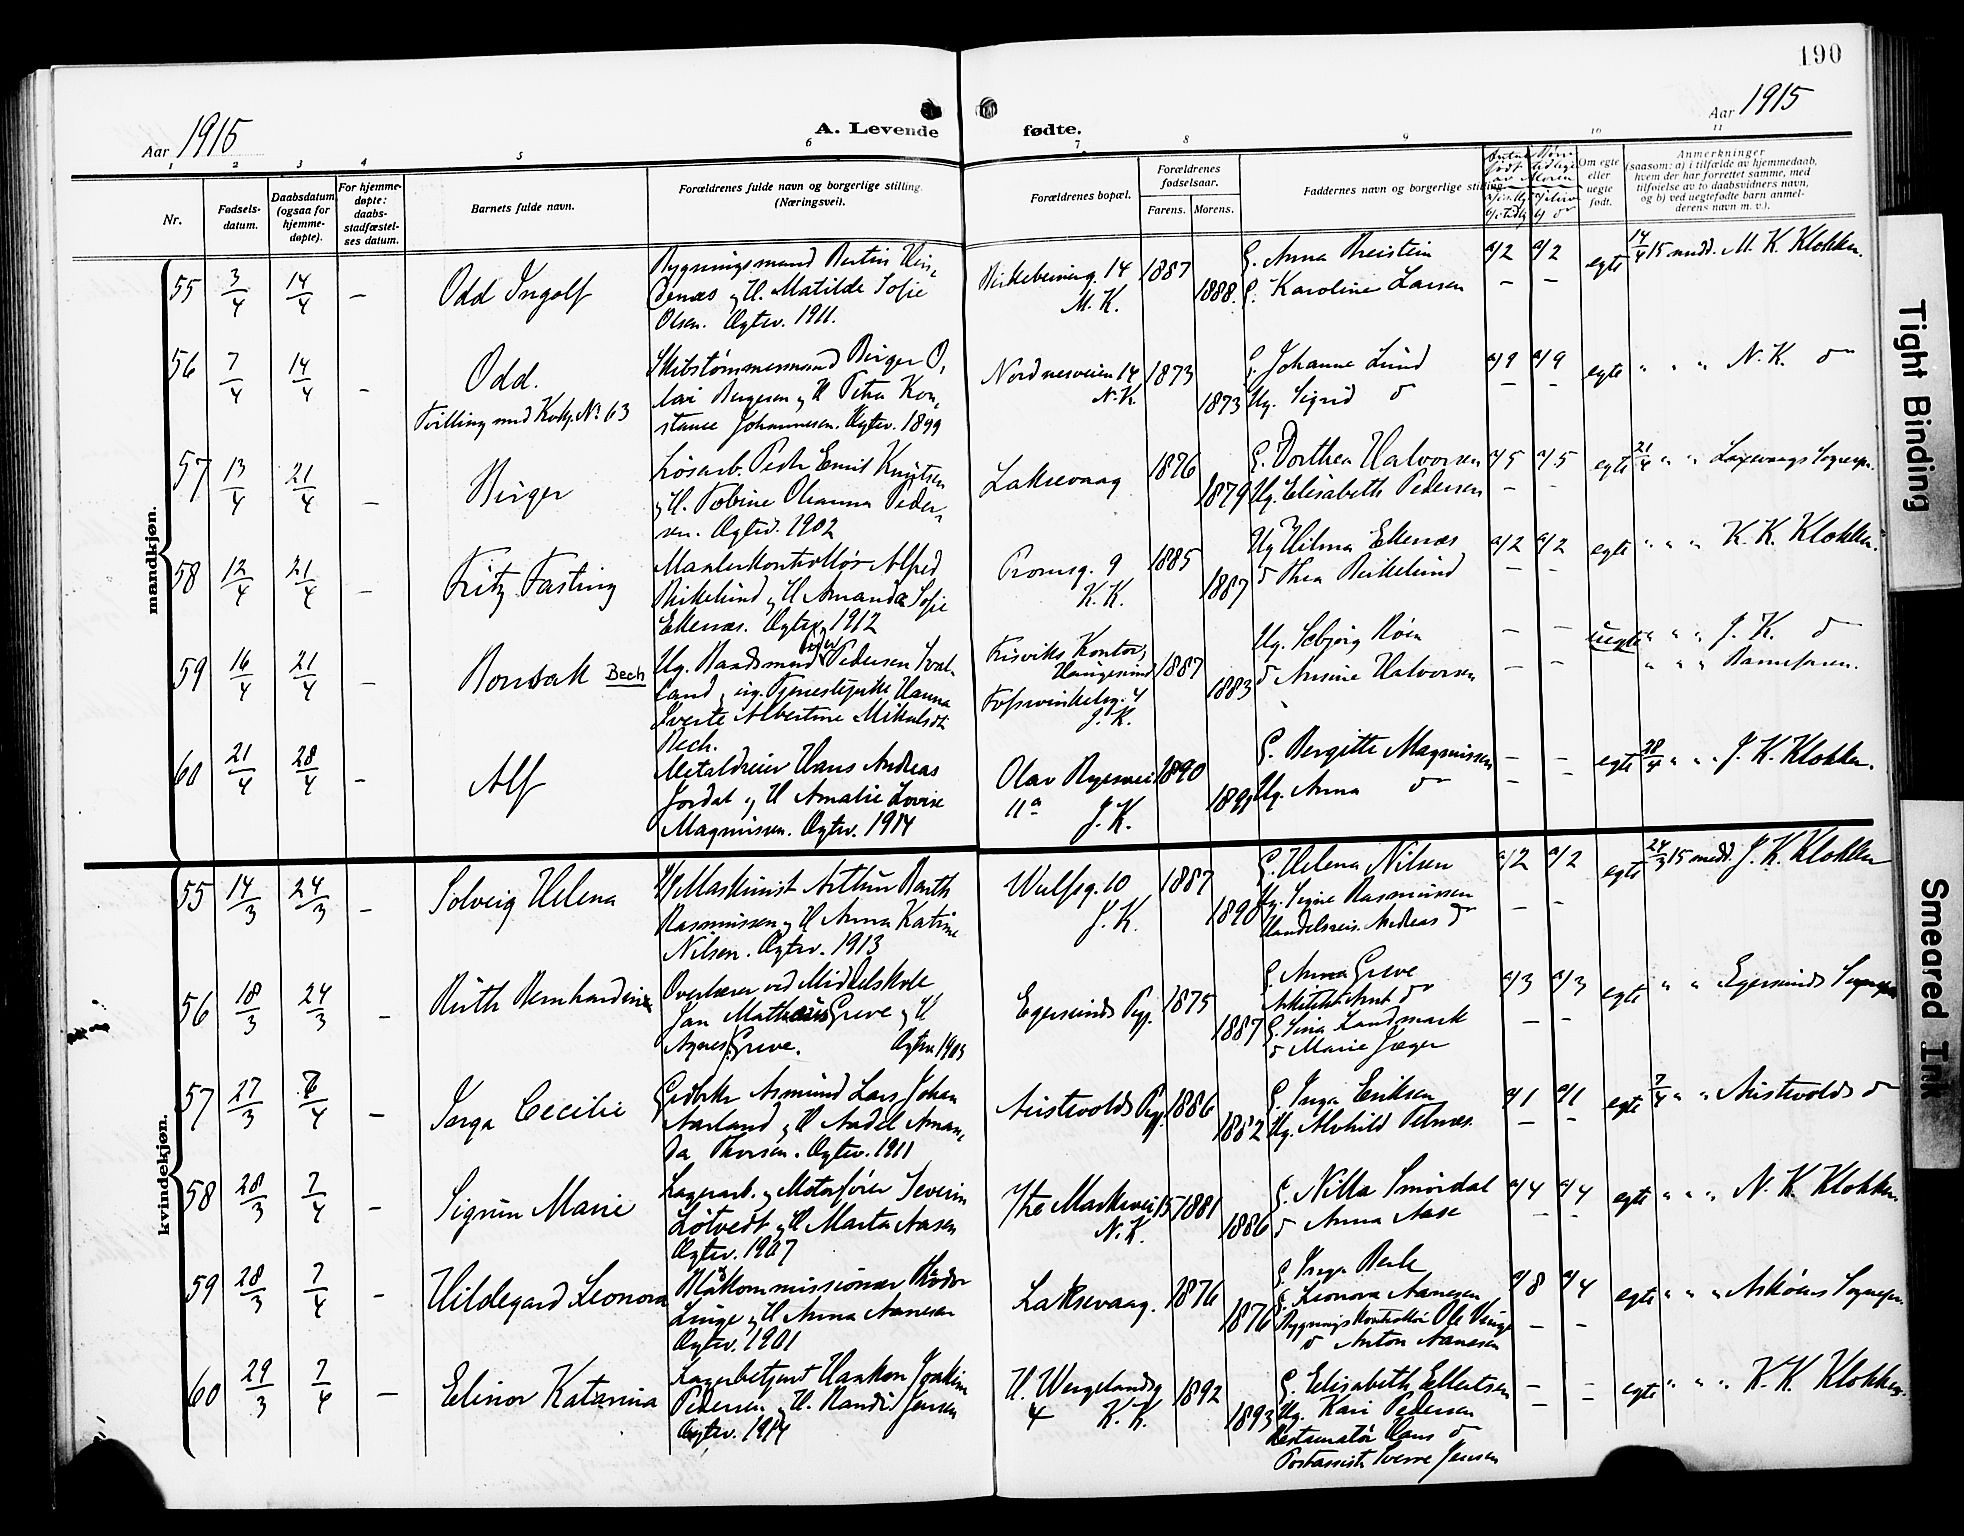 190
Aar 1915
A. Levende
fødte.
Aar 1915
1 2 3 4 5 6 7 8 9 10 11
Nr.
Fødsels-
datum.
Daabsdatum
(ogsaa for
hjemme-
døpte).
For hjemme-
døpte:
daabs-
stadfæstel-
ses datum.
Barnets fulde navn.
Forældrenes fulde navn og borgerlige stilling.
(Næringsvei).
Forældrenes bopæl.
Forældrenes
fødselsaar.
Farens. Morens.
Faddernes navn og borgerlige stilling
Om egte
eller
uegte
født.
Anmerkninger
(saasom: a) i tilfælde av hjemmedaab,
hvem der har forrettet samme, med
tilføielse av to daabsvidners navn,
og b) ved uegtefødte barn anmel-
derens navn m. v.).
mandkjøn.
55 3/4 14/4 – Odd Ingolf
Bygningsmand Bertin
Hustru Matilde Sofie
Olsen. Egtev. 1911.
Birkebeinerg. 14
M. K.
1887
1888.
G. Anna Breistein
G. Karoline Larsen
a/2 a/2
– –
egte
14/4 15 medd. M. K. Klokker.
56 7/4 14/4 – Odd.
Tvilling med Kvkj. No. 63
Skibstømmermand Birger O,
lai Bergesen og H Petra Kon,
stance Johannesen. Egtev. 1899
Nordnesveien 14
N. K.
1873
1873
G. Johanne Lund
Ug. Sigrid do
a/9 a/9
– –
egte
" " " N. K. do
57 13/4 21/4 – Birger
Løsarb. Peder Emil Knutsen
og H. Tobine Olianna Peder-
sen. Egtev. 1902
Laksevaag
1876
1879
G. Dorthea Halvorsen
Ug. Elisabeth Pedersen
a/5 a/5
– –
egte
21/4 " " Laxevaags Sognepr.
58 12/4 21/4 – Fritz Fasting
Maalerkontrollør Alfred
Birkelund og H Amanda Sofie
Ellenæs. Egtev. 1912
Tromsg. 9
K. K.
1885
1887
Ug Hilma Ellenæs
do Thea Birkelund
a/2 a/2
– –
egte
" " " K. K. Klokker.
59 16/4 21/4 – Bonsak Bech
Ug. Baadsmand Peder Pedersen
land og ug. Tjenestepike Hanna
Sverte Albertine Mikalsdt
Bech.
Risviks Kontor,
Haugesund
Fosswinkelsg. 4
J. K.
1887
1883
Ug. Solbjørg Røen
do Arsine Halvorsen
– –
– –
uegte
" " " J. K. do
" " " Barnefaren.
60 21/4 28/4 – Alf
Metaldreier Hans Andreas
Jordal og H Amalie Lovise
Magnussen. Egtev. 1914
Olav Ryesvei
11a J. K.
1890
1891
G. Bergitte Magnussen
Ug. Anna do
– –
– –
egte
28/4 " " J. K. Klokker.
kvindekjøn.
55 14/3 24/3 – Solveig Helena
Maskinist Arthur Barth
Rasmussen og H Anna Katrine
Nilsen. Egtev. 1913
Wulfsg. 10
J. K.
1887
1890
G. Helena Nilsen
Ug. Signe Rasmussen
Handelsreis. Andreas do
a/2 a/2
– –
egte
24/3 15 medd. J. K. Klokker
56 18/3 24/3 – Ruth Bernhardine
Overlærer ved Middelskole
Jan Mathias Greve og H
Agnes Greve. Egtev. 1905
Egersunds Pgj.
1875
1887
G. Anna Greve
Arkitekt Arnt do
G. Sina Landmark
do Marie Jæger
a/3 a/3
– –
egte
" " Egersunds Sognepr
57 27/3 7/4 – Inga Cecilie
Gaardbr. Asmund Lars Johan
Aarland og H Aadel Aman,
da Thorsen. Egtev. 1911
Austevolds Pgj.
1886
1882
G. Inga Eriksen
Ug. Alvhild Telnæs.
a/1 a/1
– –
egte
7/4 " " Austevolds do
58 28/3 7/4 – Sigrun Marie
Lagerarb. og Motorfører Severin
Løtvedt og H Marta Aasen
Egtev. 1907
Ytre Markevei 15
N. K.
1881
1886
G. Nilla Smørdal
do Anna Aase
a/4 a/4
– –
egte
" " " N. K. Klokker.
59 28/3 7/4 – Hildegard Leonora
Linge og H Anna Aanesen
Egtev. 1901
Laksevaag.
1876
1876
G. Inga Berle
G. Leonora Aanesen
Bygningskontrollør Ole Linge
do Anton Aanesen
a/8 a/4
– –
egte
" " " Askøens Sognepr.
60 29/3 7/4 – Elinor Katarina
Lagerbetjent Haakon Joakim
Pedersen og H. Randi Jensen
Egtev. 1914
H. Wergelandsg
4 K. K.
1892
1893
G. Elisabeth Ellertsen
Ug. Kari Pedersen
Restauratør Hans do
Postassistent Sverre Jensen
– –
– –
egte
" " " K. K. Klokker.
Tight Binding
Smeared Ink